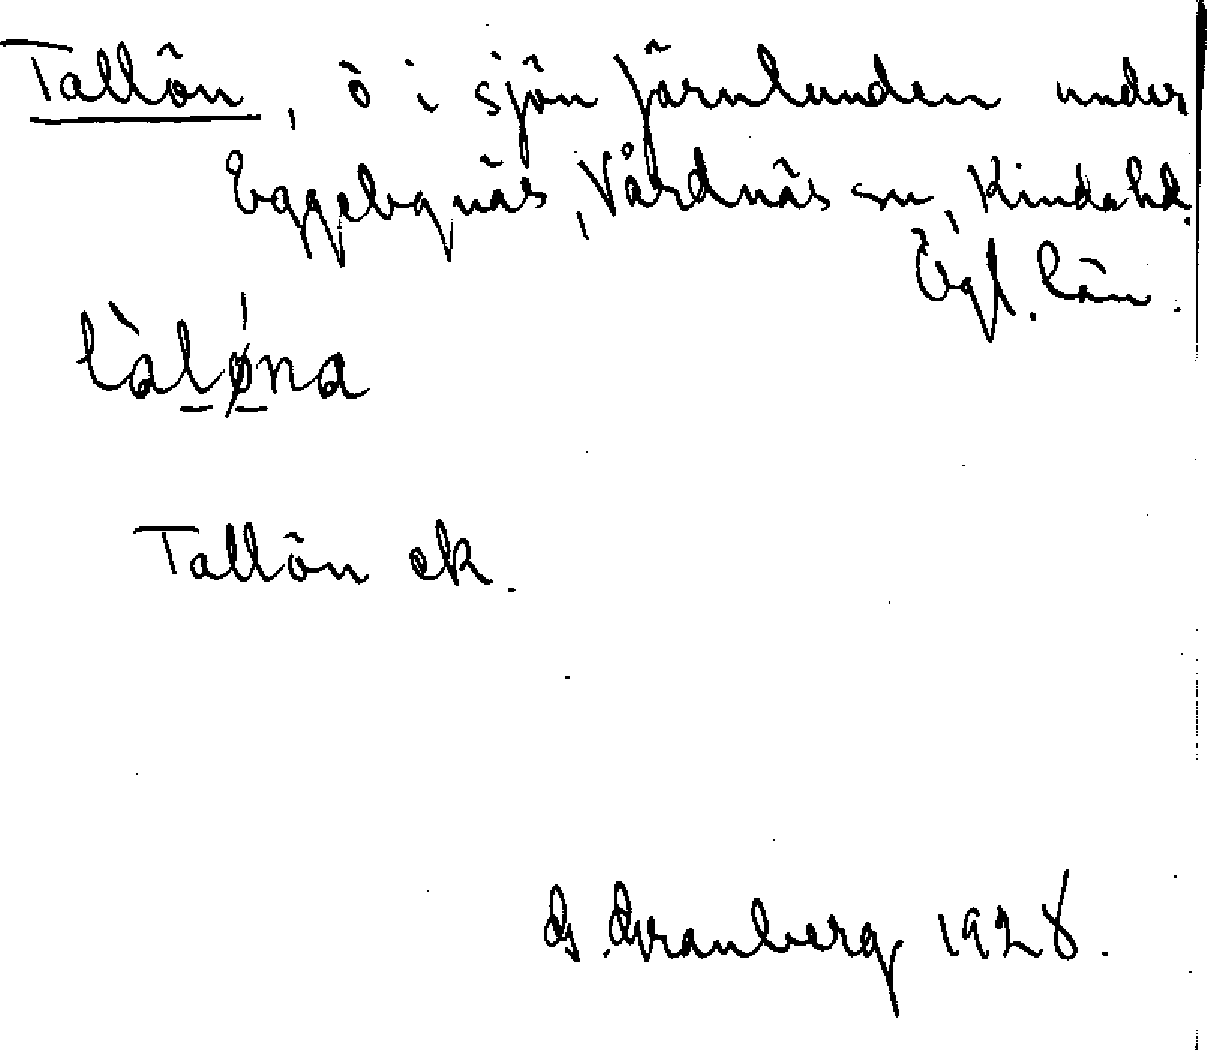 Tallön, ö i sjön Järnlunden under
Eggebynäs, Vårdnäs sn, Kinda hd.
Ögl. län.
tàlø̀na
Tallön ek.
G. Granberg 1928.